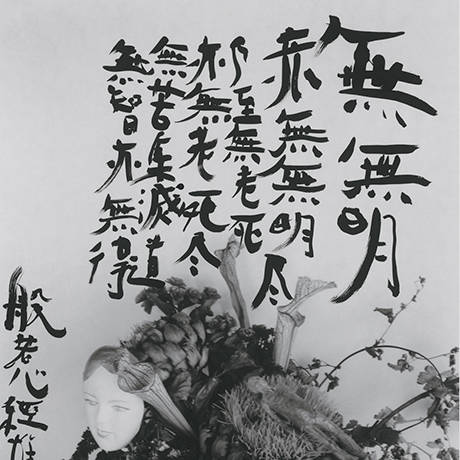 無無明
亦無無明尽
乃至無老死
亦無老死尽
無苦集滅道
無智亦無得
般若心経